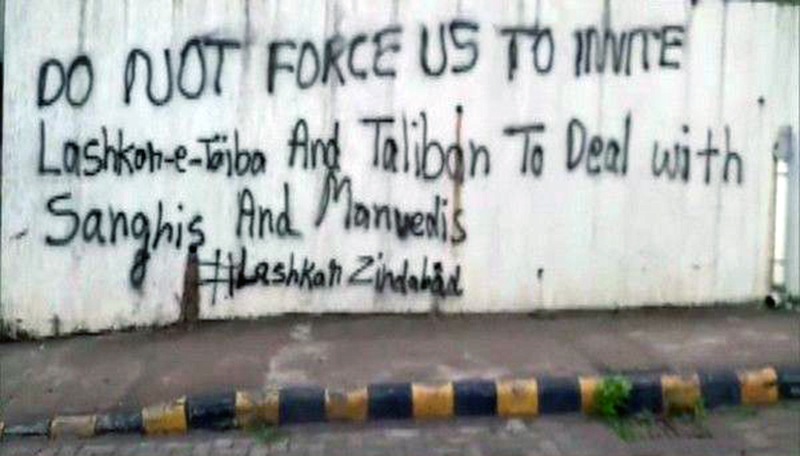 DO NOT FORCE US TO INVITE
Lashkar-e-Taiba And Taliban To Deal with
Sanghis And Manvedis
#Lashkar Zindabad